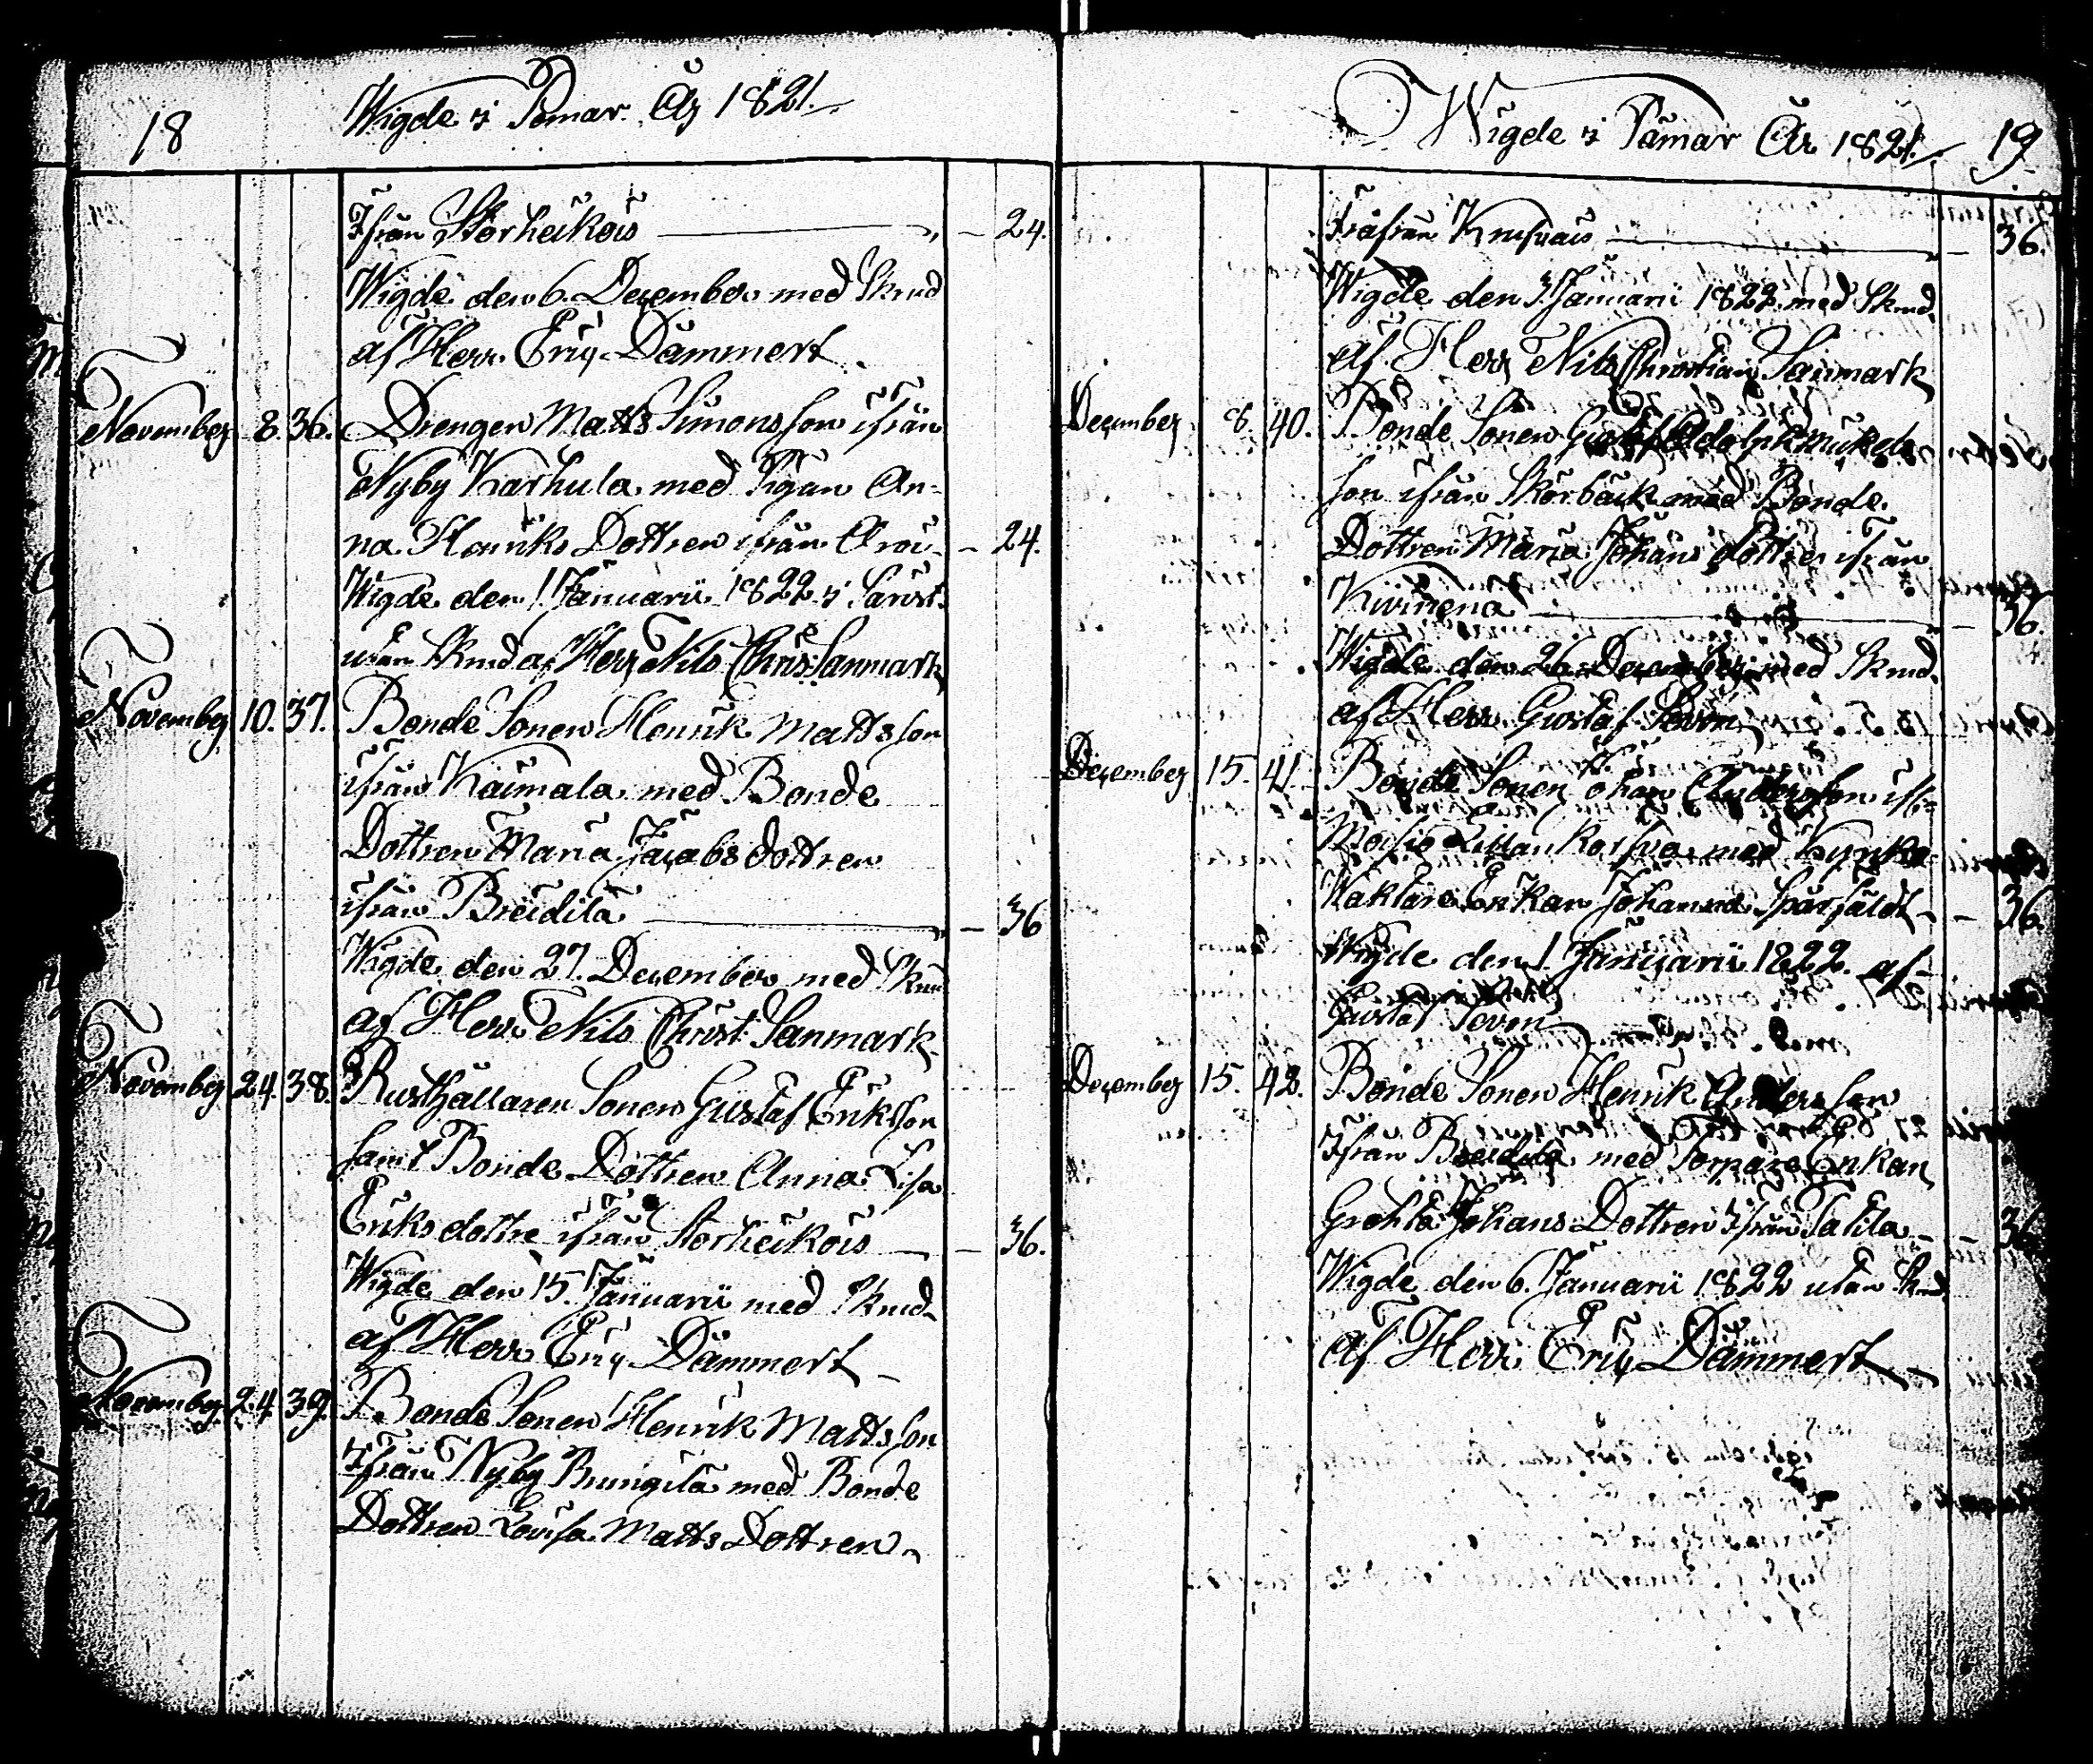 18
Wigde i Pemar År 1821.
Ifrån Storheikois — 24.
Wigde den 6. December med Skrud
af Herr Eriq Dammert
November 8. 36. Drengen Matts Simonsson ifrån
Nyby Karhula med Pigan An-
na Henriks Dottren ifrån — 24.
Wigde den 1. Januarii 1822 i
utan Skrud af Herr Nils Chris Sanmark
November 10. 37. Bonde Sonen Henrik Mattsson
ifrån Kaimala med Bonde
Dottren Maria Jacobs dottren
ifrån Breidila — 36
Wigde den 27. December med Skrud
af Herr Nils Christ. Sanmark
November 24. 38. Rusthållaren Sonen Gustaf Eriksson
samt Bonde Dottren Anna Lisa
Eriks dottre ifrån Storheikois — 36.
Wigde den 15. Januarii med Skrud
af Herr Eriq Dammert
November 24. 39. Bonde Sonen Henrik Mattsson
Ifrån Nyby Brungila med Bonde
Dottren Lovisa Matts Dottren
Wigde i Pämar År 1821. 19
— 36.
Wigde den 3. Januarii 1822 med Skrud
af Herr Nils Christian Sanmark
December 8. 40. Bonde Sonen Gustaf Adolph Mickels
son ifrån Skörbäck med Bonde
Dottren Maria Johans dottre ifrån
— 36.
Wigde den 26. December med Skrud
af Herr Gustaf Sevon
December 15. 41. Bonde Sonen Johan Andersson ifr:
med Kyrko
Waktare Enkan Johanna — 36.
Wigde den 1. Januarii 1822. af
Gustaf Sevon
December 15. 42. Bonde Sonen Henrik Andersson
Ifrån Breidila med Torpare Enkan
Grehta Johans Dottren Ifrån Tatila — 36
Wigde den 6. Januarii 1822 utan Skrud
af Herr Eriq Dammert